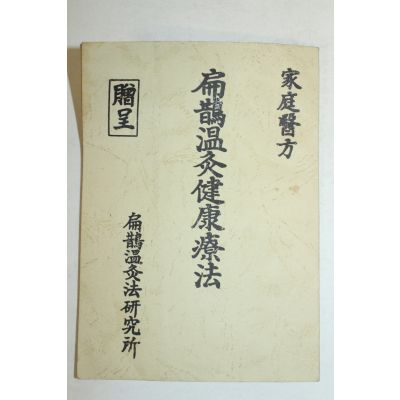 家庭醫方
扁鵲溫灸健康療法
扁鵲溫灸法硏究所
贈呈